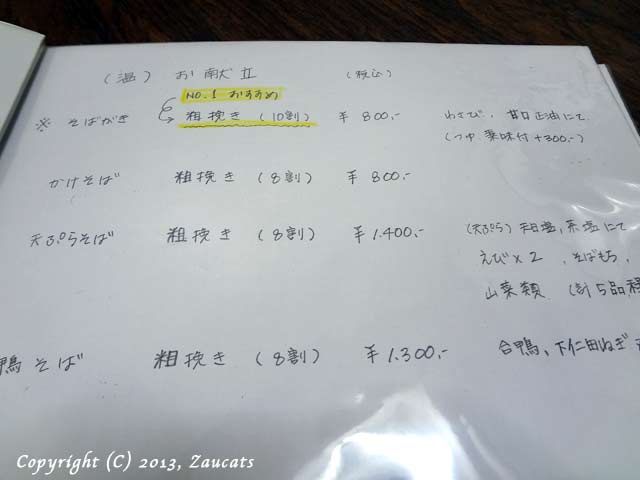 (温) お献立 (税込)
NO.1 おすすめ
※ そばがき 粗挽き (10割) ¥800.- わさび、甘口正油にて
(つゆ、薬味付+300.-)
かけそば 粗挽き (8割) ¥800.-
天ぷらそば 粗挽き (8割) ¥1.400.- (天ぷら) 天日塩、茶塩にて
えび×2 、そばもち、
山菜類 (計5品程
鴨そば 粗挽き (8割) ¥1.300.- 合鴨、下仁田ねぎ
Copyright (C) 2013, Zaucats